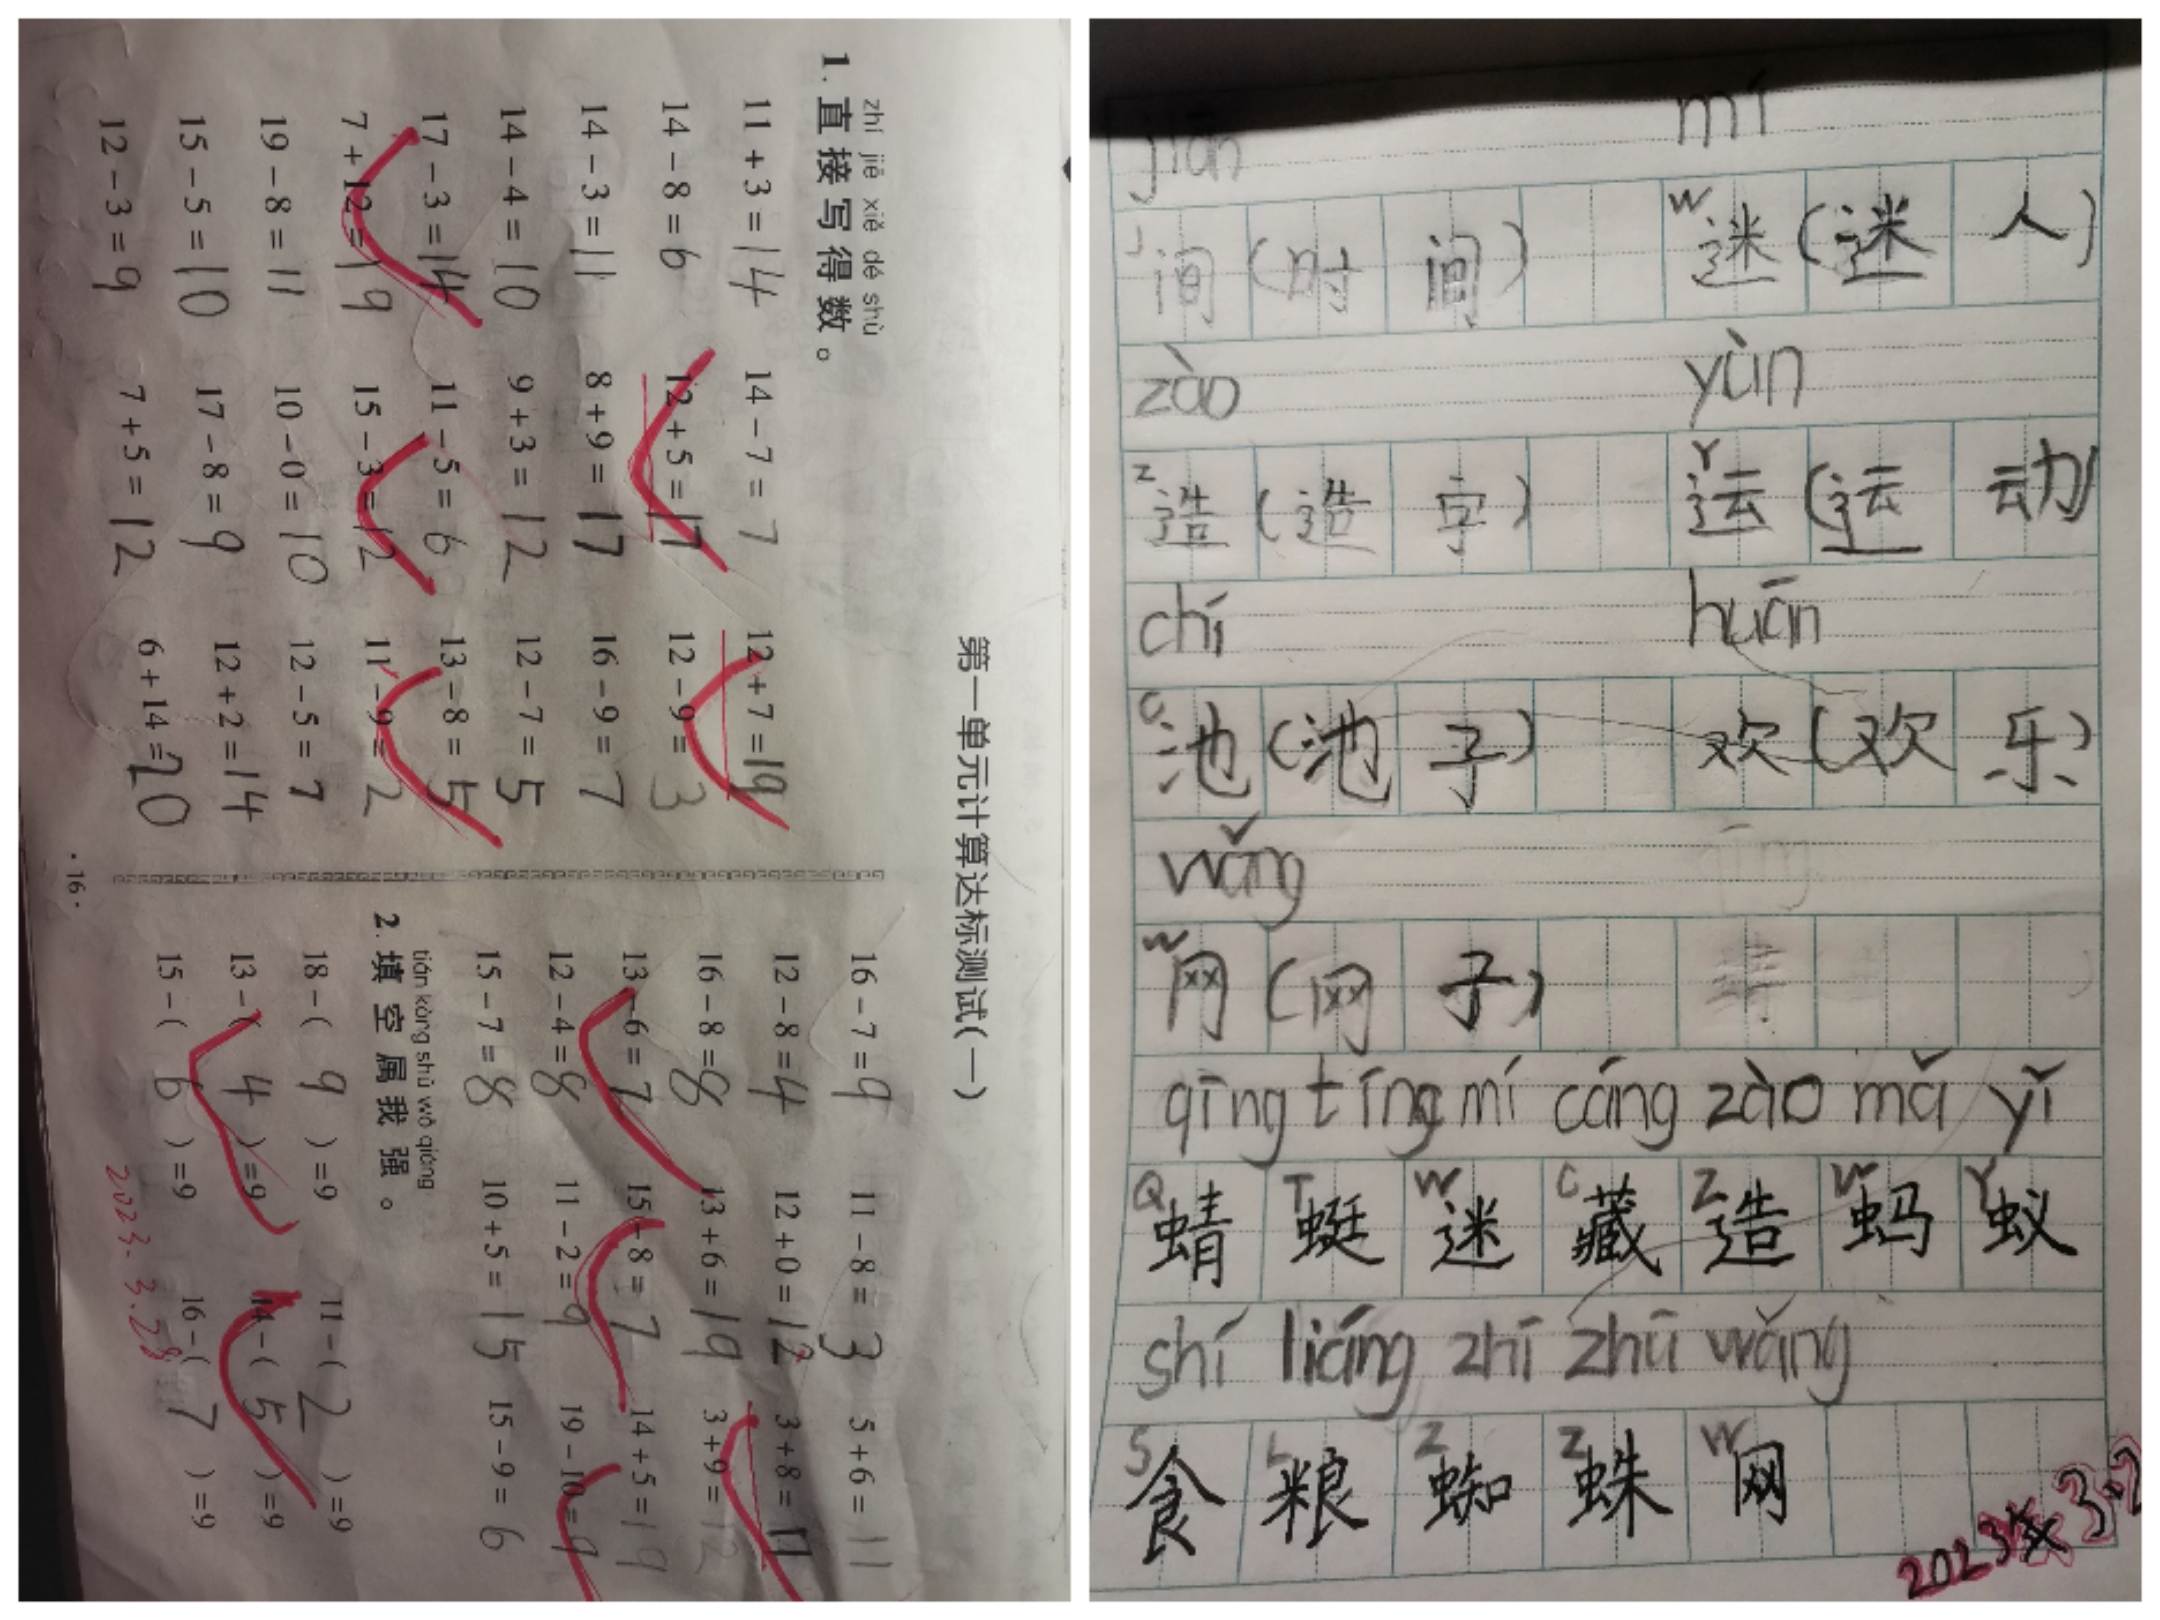 第一单元计算达标测试(一)
zhí jiē xiě dé shù
1. 直接写得数。
11+3=14 14-7=7 12+7=19
14-8=6 12+5=17 12-9=3
14-3=11 8+9=17 16-9=7
14-4=10 9+3=12 12-7=5
17-3=14 11-5=6 13-8=5
7+12=19 15-3=12 11-9=2
19-8=11 10-0=10 12-5=7
15-5=10 17-8=9 12+2=14
12-3=9 7+5=12 6+14=20
16-7=9 11-8=3 5+6=11
12-8=4 12+0=12 3+8=11
16-8=8 13+6=19 3+9=12
13-6=7 15-8=7 14+5=19
12-4=8 11-2=9 19-10=9
15-7=8 10+5=15 15-9=6
tián kòng shǔ wǒ qiáng
2. 填空属我强。
18-(9)=9 11-(2)=9
13-(4)=9 14-(5)=9
15-(6)=9 16-(7)=9
2023.3.28
·16·
jiān mí
J间(时间) W迷(迷人)
zào yùn
Z造(造字) Y运(运动)
chí huān
C池(池子) 欢(欢乐)
wǎng
W网(网子)
qīng tíng mí cáng zào mǎ yǐ
Q蜻 T蜓 W迷 C藏 Z造 蚂 Y蚁
shí liáng zhī zhū wǎng
S食 L粮 Z蜘 Z蛛 W网